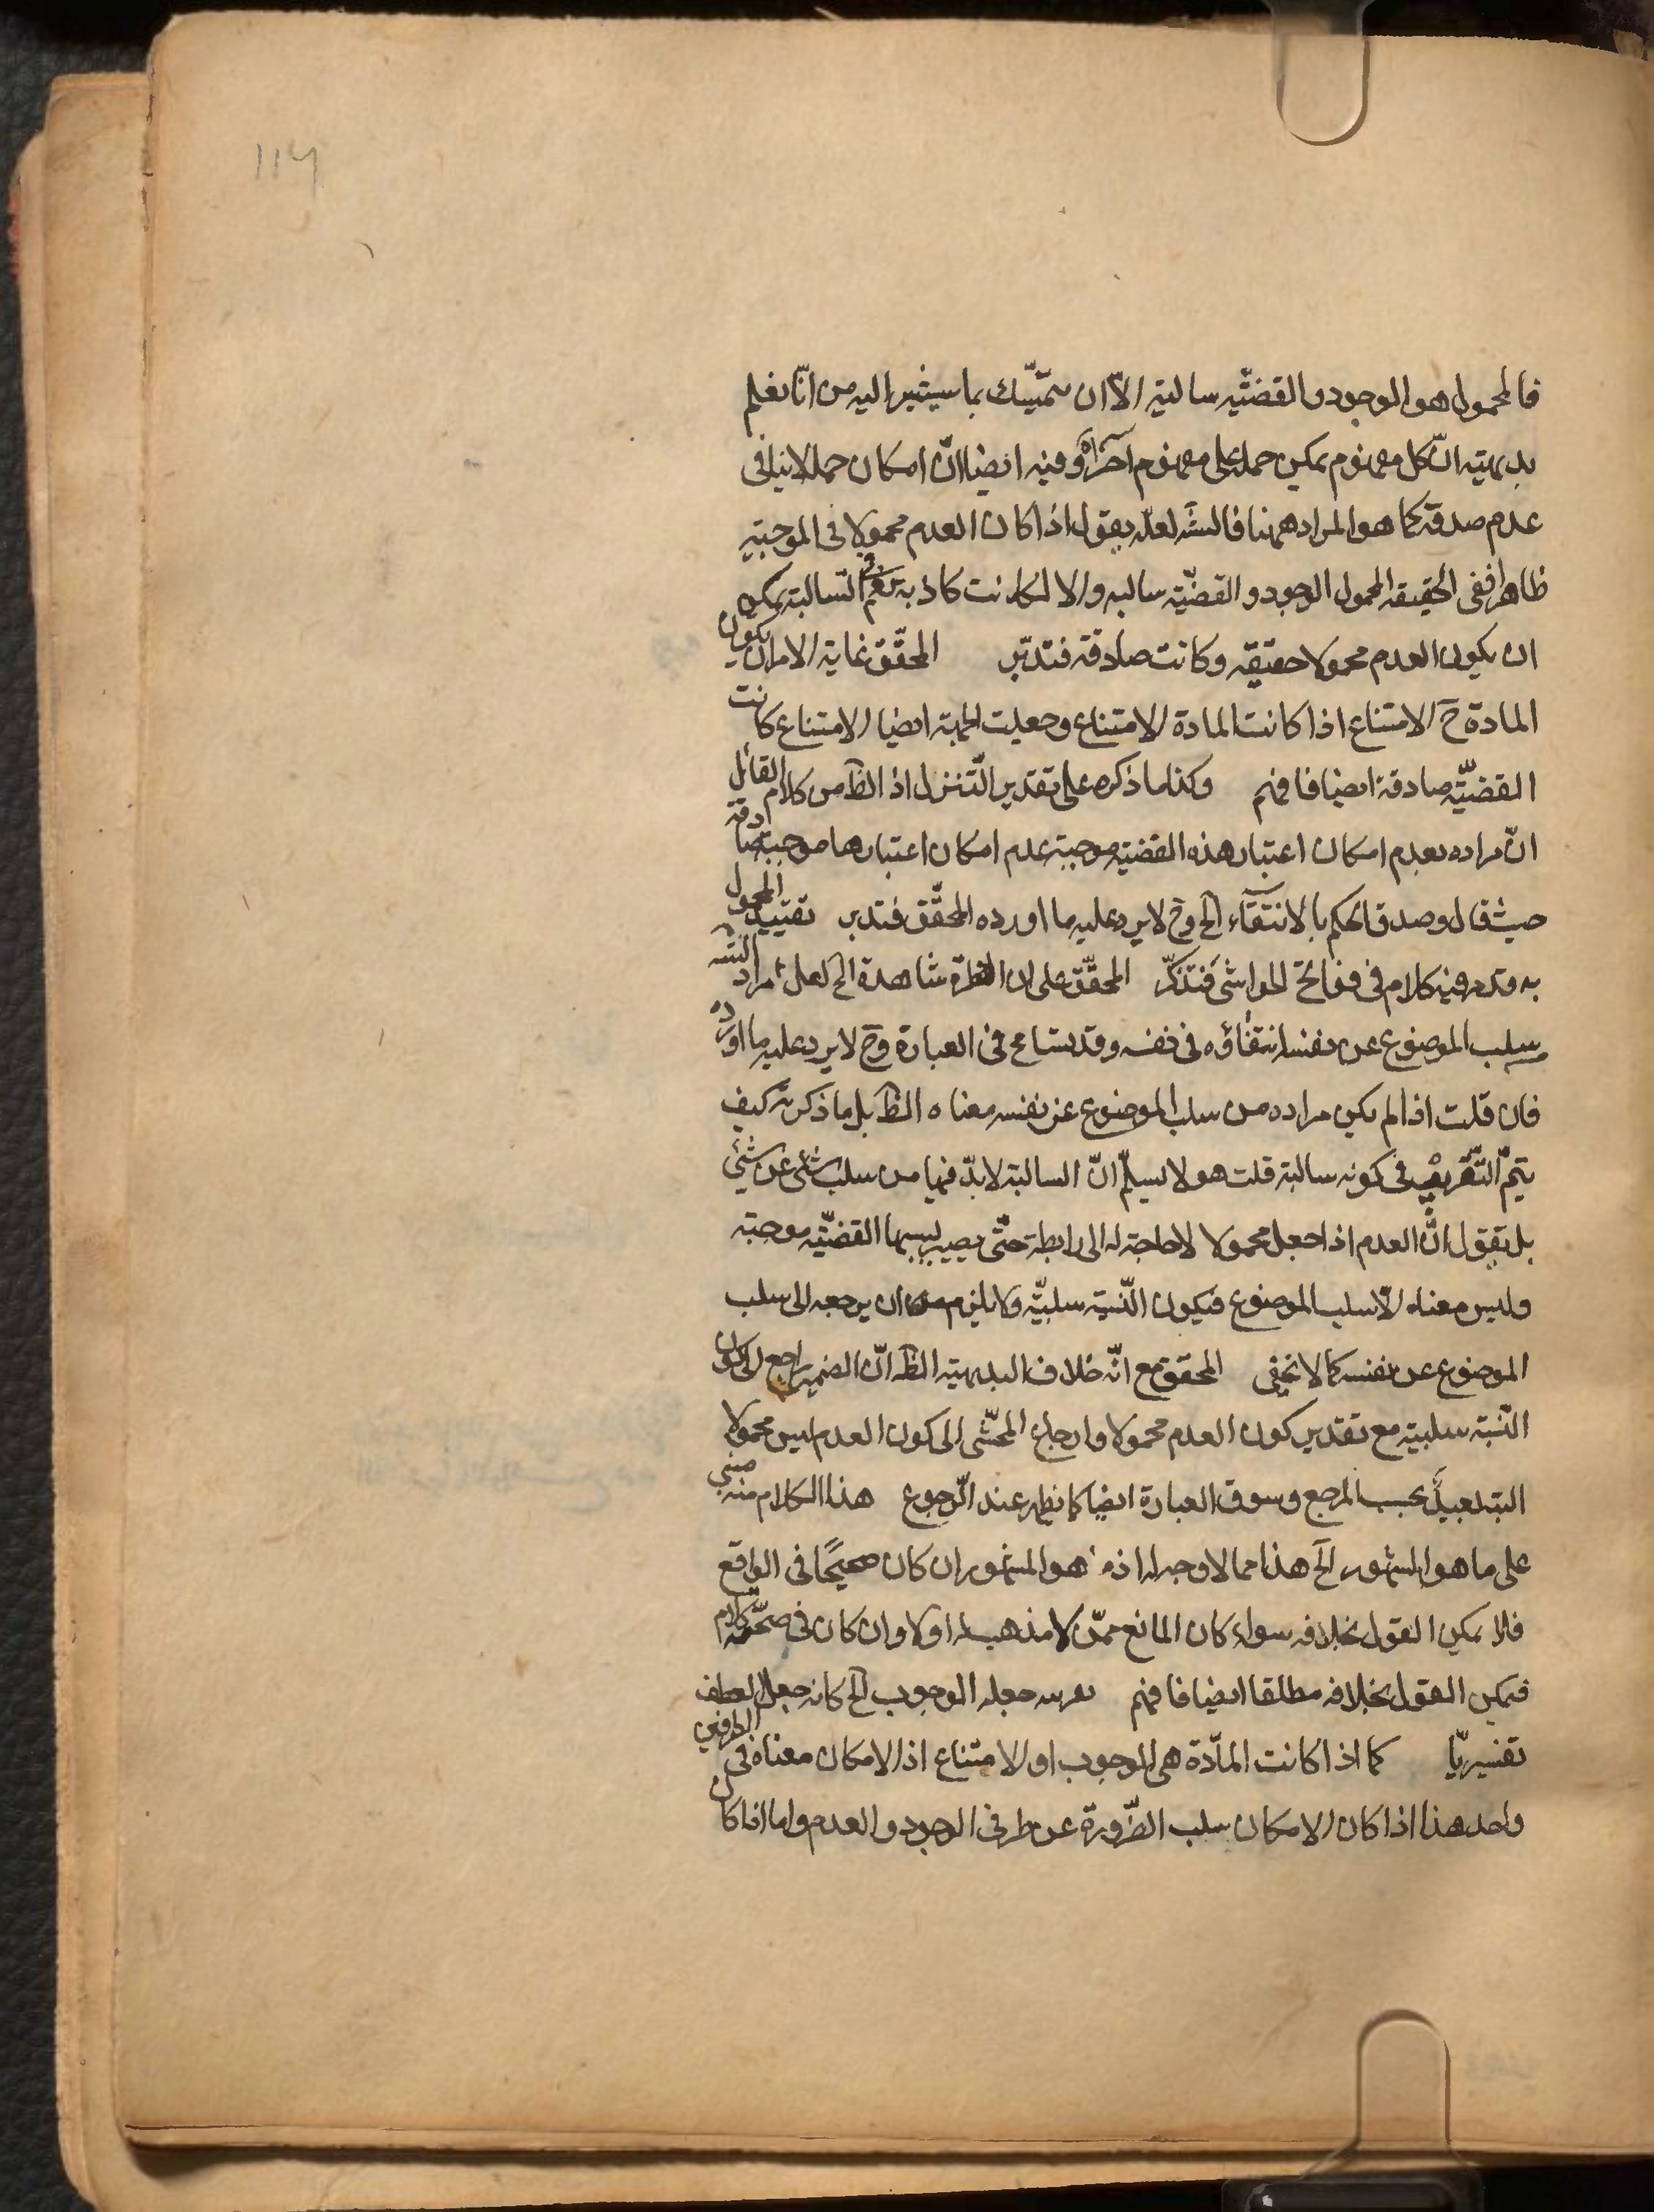 114
فالمحمول هو الوجود والقضيّة سالبة الّا ان يتمسّك بما سيشير اليه من انّا نعلم
بديهية انّ كل مفهوم يمكن حمله على مفهوم آخر اه وفيه ايضا انّ امكان حمله لا ينافى
عدم صدقه كما هو المراد ههنا فالسّيد لعلّه يقول اذا كان العدم محمولا فى الموجبة
ظاهرا ففى الحقيقة المحمول الوجود والقضيّة سالبه والا لكانت كاذبة نعم السّالبة يمكن
ان يكون العدم محمولا حقيقة وكانت صادقة فتدبّر المحقّق غاية الامر ان يكون
المادة ح الامتناع اذا كانت المادة الامتناع وجعلت الجهة ايضا الامتناع كانت
القضيّة صادقة ايضا فافهم وكذا ما ذكره على تقدير التّنزل اذ الظ من كلام القائل
انّ مراده بعدم امكان اعتبار هذه القضية موجبة عدم امكان اعتبارها موجبة صادقة
حيث قال وصدق الحكم بالانتفاء الخ وح لا يرد عليه ما اورده المحقّق فتدبر تقييد المحمول
به وقد مر فيه كلام فى فواتح الحواشى فتذكّر المحقّق على ان الفطرة شاهدة الخ لعل مراد السّيد
سلب الموضوع عن نفسه انتفاؤه فى نفسه وقد تسامح فى العبارة وح لا يرد عليه ما اورده
فان قلت اذا لم يكن مراده من سلب الموضوع عن نفسه معناه الظ بل ما ذكرته كيف
يتمّ التّقريب فى كونه سالبة قلت هو لا يسلّم انّ السالبة لا بدّ فيها من سلب شئ عن شئ
بل يقول انّ العدم اذا جعل محمولا لا حاجة له الى رابطة حتّى يصير بسببها القضيّة موجبة
وليس معناه الّا سلب الموضوع فيكون النّسبة سلبيّة ولا يلزم منه ان يرجعه الى سلب
الموضوع عن نفسه كما لا يخفى المحقق مع انّه خلاف البديهية الظ انّ الضمير راجع الى كون
النّسبة سلبية مع تقدير كون العدم محمولا وارجاع المحشّى الى كون العدم ليس محمولا
البتة بعيد بحسب المرجع وسوق العبارة ايضا كما يظهر عند الرّجوع هذا الكلام منه مبنى
على ما هو المشهور الخ هذا مما لا وجه له اذ ما هو المشهور ان كان صحيحًا فى الواقع
فلا يمكن القول بخلافه سواء كان المانع ممّن لا مذهب له او لا وان كان فى صحّته كلام
فيمكن القول بخلافه مطلقا ايضا فافهم جعله الوجوب الخ كانه جعل العطف
تفسيريّا كما اذا كانت المادّة هى الوجوب او الامتناع اذ الامكان معناه فى الطرفين
واحد هذا اذا كان الامكان سلب الضّرورة عن طرفى الوجود والعدم واما اذا كان